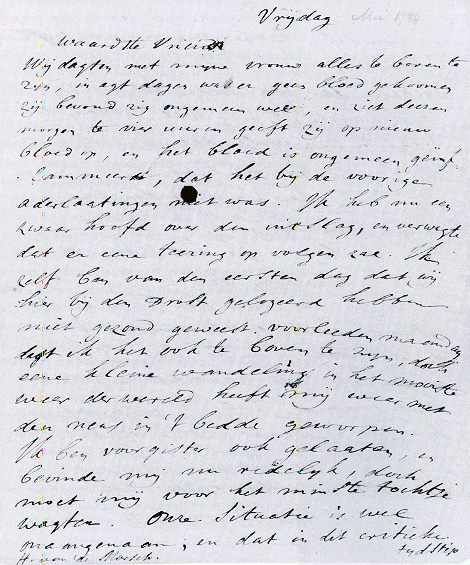 Vrijdag Mei 1784
waardste Vriend
Wij dagten met mijne vrouw alles te boven te
zijn, in agt dagen was er geen bloed gekoomen
zij bevond zig ongemeen wel, en ziet deesen
morgen te vier uuren geeft zij op nieuw
bloed op, en het bloed is ongemeen geïnf-
lammeerd, dat het bij de voorige
aderlaatingen niet was. Ik heb nu een
zwaar hoofd over den uitslag, en verwagte
dat er eene teering op volgen zal. Ik
zelf ben van den eersten dag dat wij
hier bij den Drost gelogeerd hebben
niet gezond geweest. voorleeden maandag
dagt ik het ook te boven te zijn, doch
eene kleine wandeling in het mooiste
weer der wereld heeft mij weer met
den neus in 't bedde geworpen.
Ik ben voorgister ook gelaaten, en
bevinde mij nu redelijk, doch
moet mij voor het minste tochtje
wagten. Onze Situatie is wel
onaangenaam, en dat in dit critieke
tijdstip
H. van de Marsch.